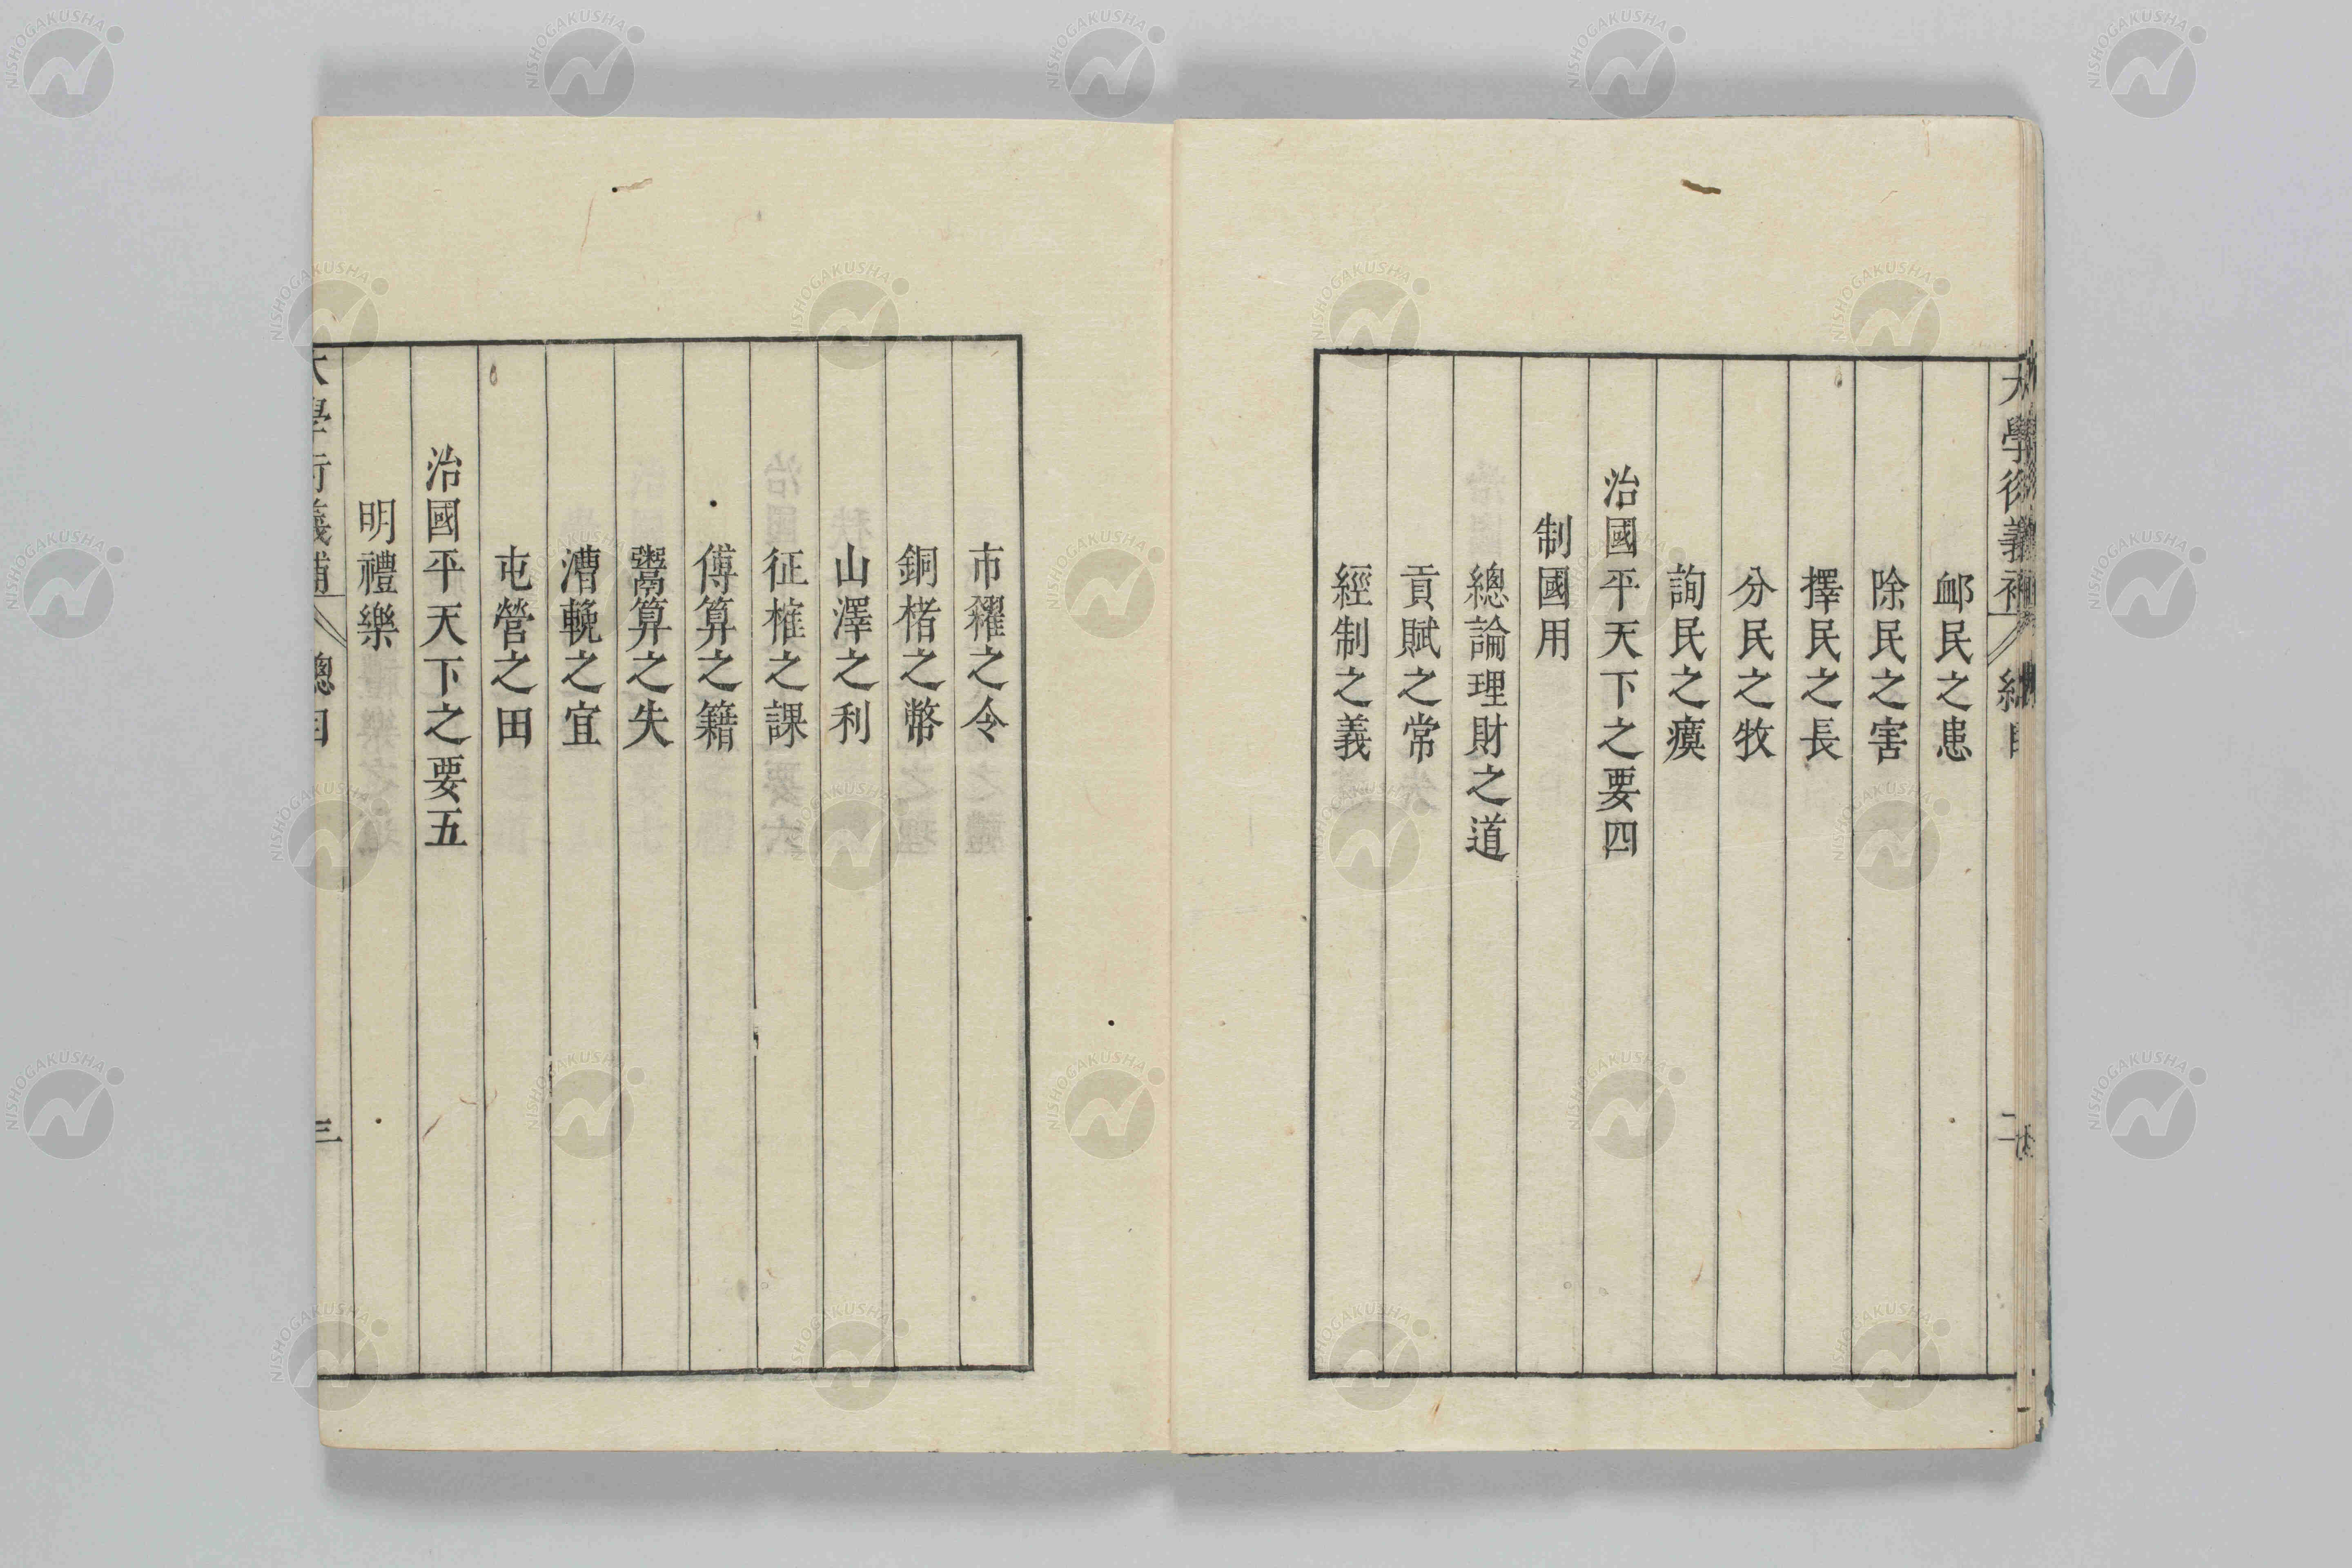 大學衍義補 總目 二
卹民之患
除民之害
擇民之長
分民之牧
詢民之瘼
治國平天下之要四
制國用
總論理財之道
貢賦之常
經制之義
市糴之令
銅楮之幣
山澤之利
征榷之課
傅算之籍
鬻算之失
漕輓之宜
屯營之田
治國平天下之要五
明禮樂
大學衍義補 總目 三
NISHOGAKUSHA